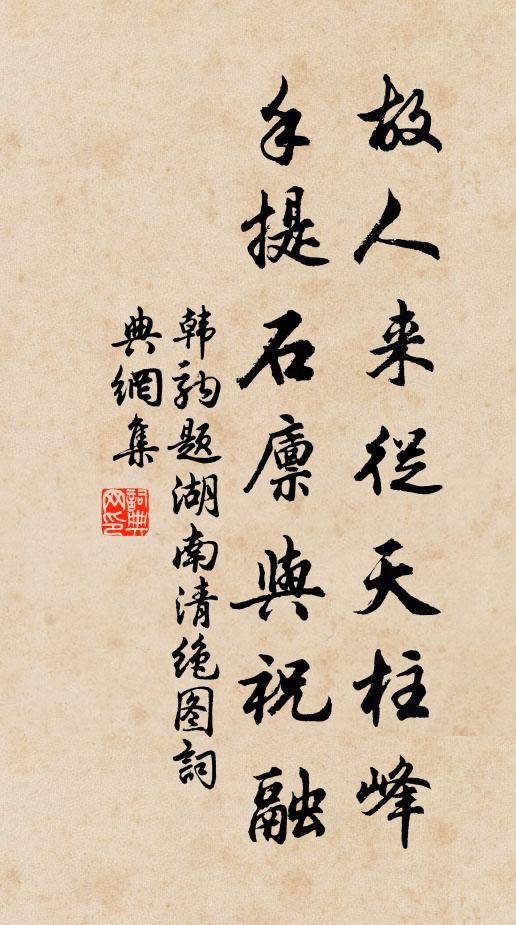 故人来從天柱峰
手提石廪與祝融
韩驹题湖南清绝图词
典網集
詞典網印